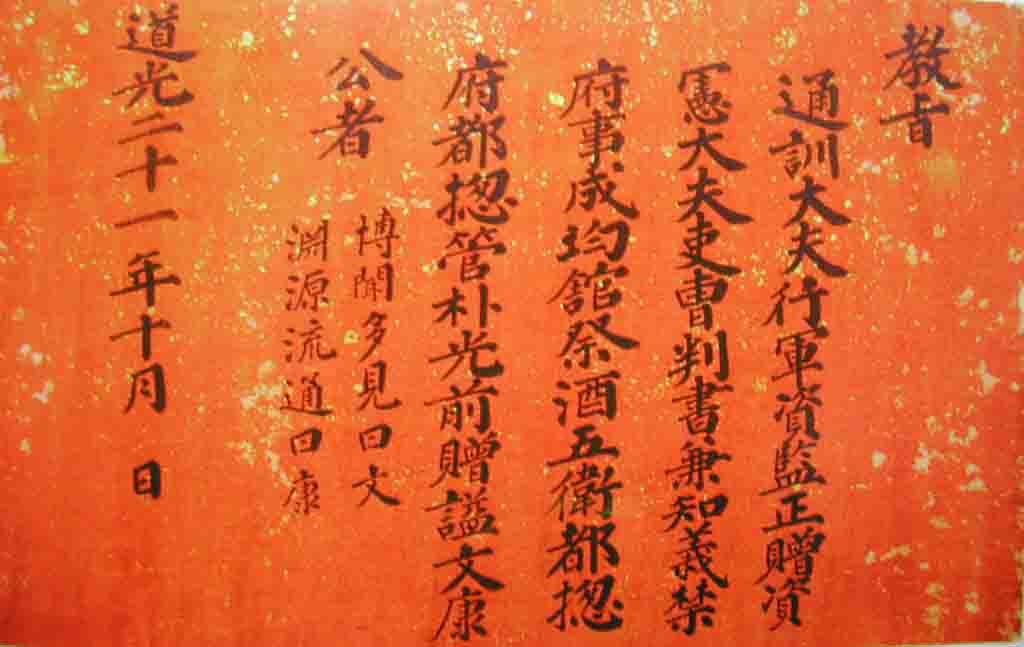 教旨
通訓大夫行軍資監正贈資
憲大夫吏曺判書兼知義禁
府事成均館祭酒五衛都摠
府都摠管朴光前贈諡文康
公者
博聞多見曰文
淵源流通曰康
道光二十一年十月 日